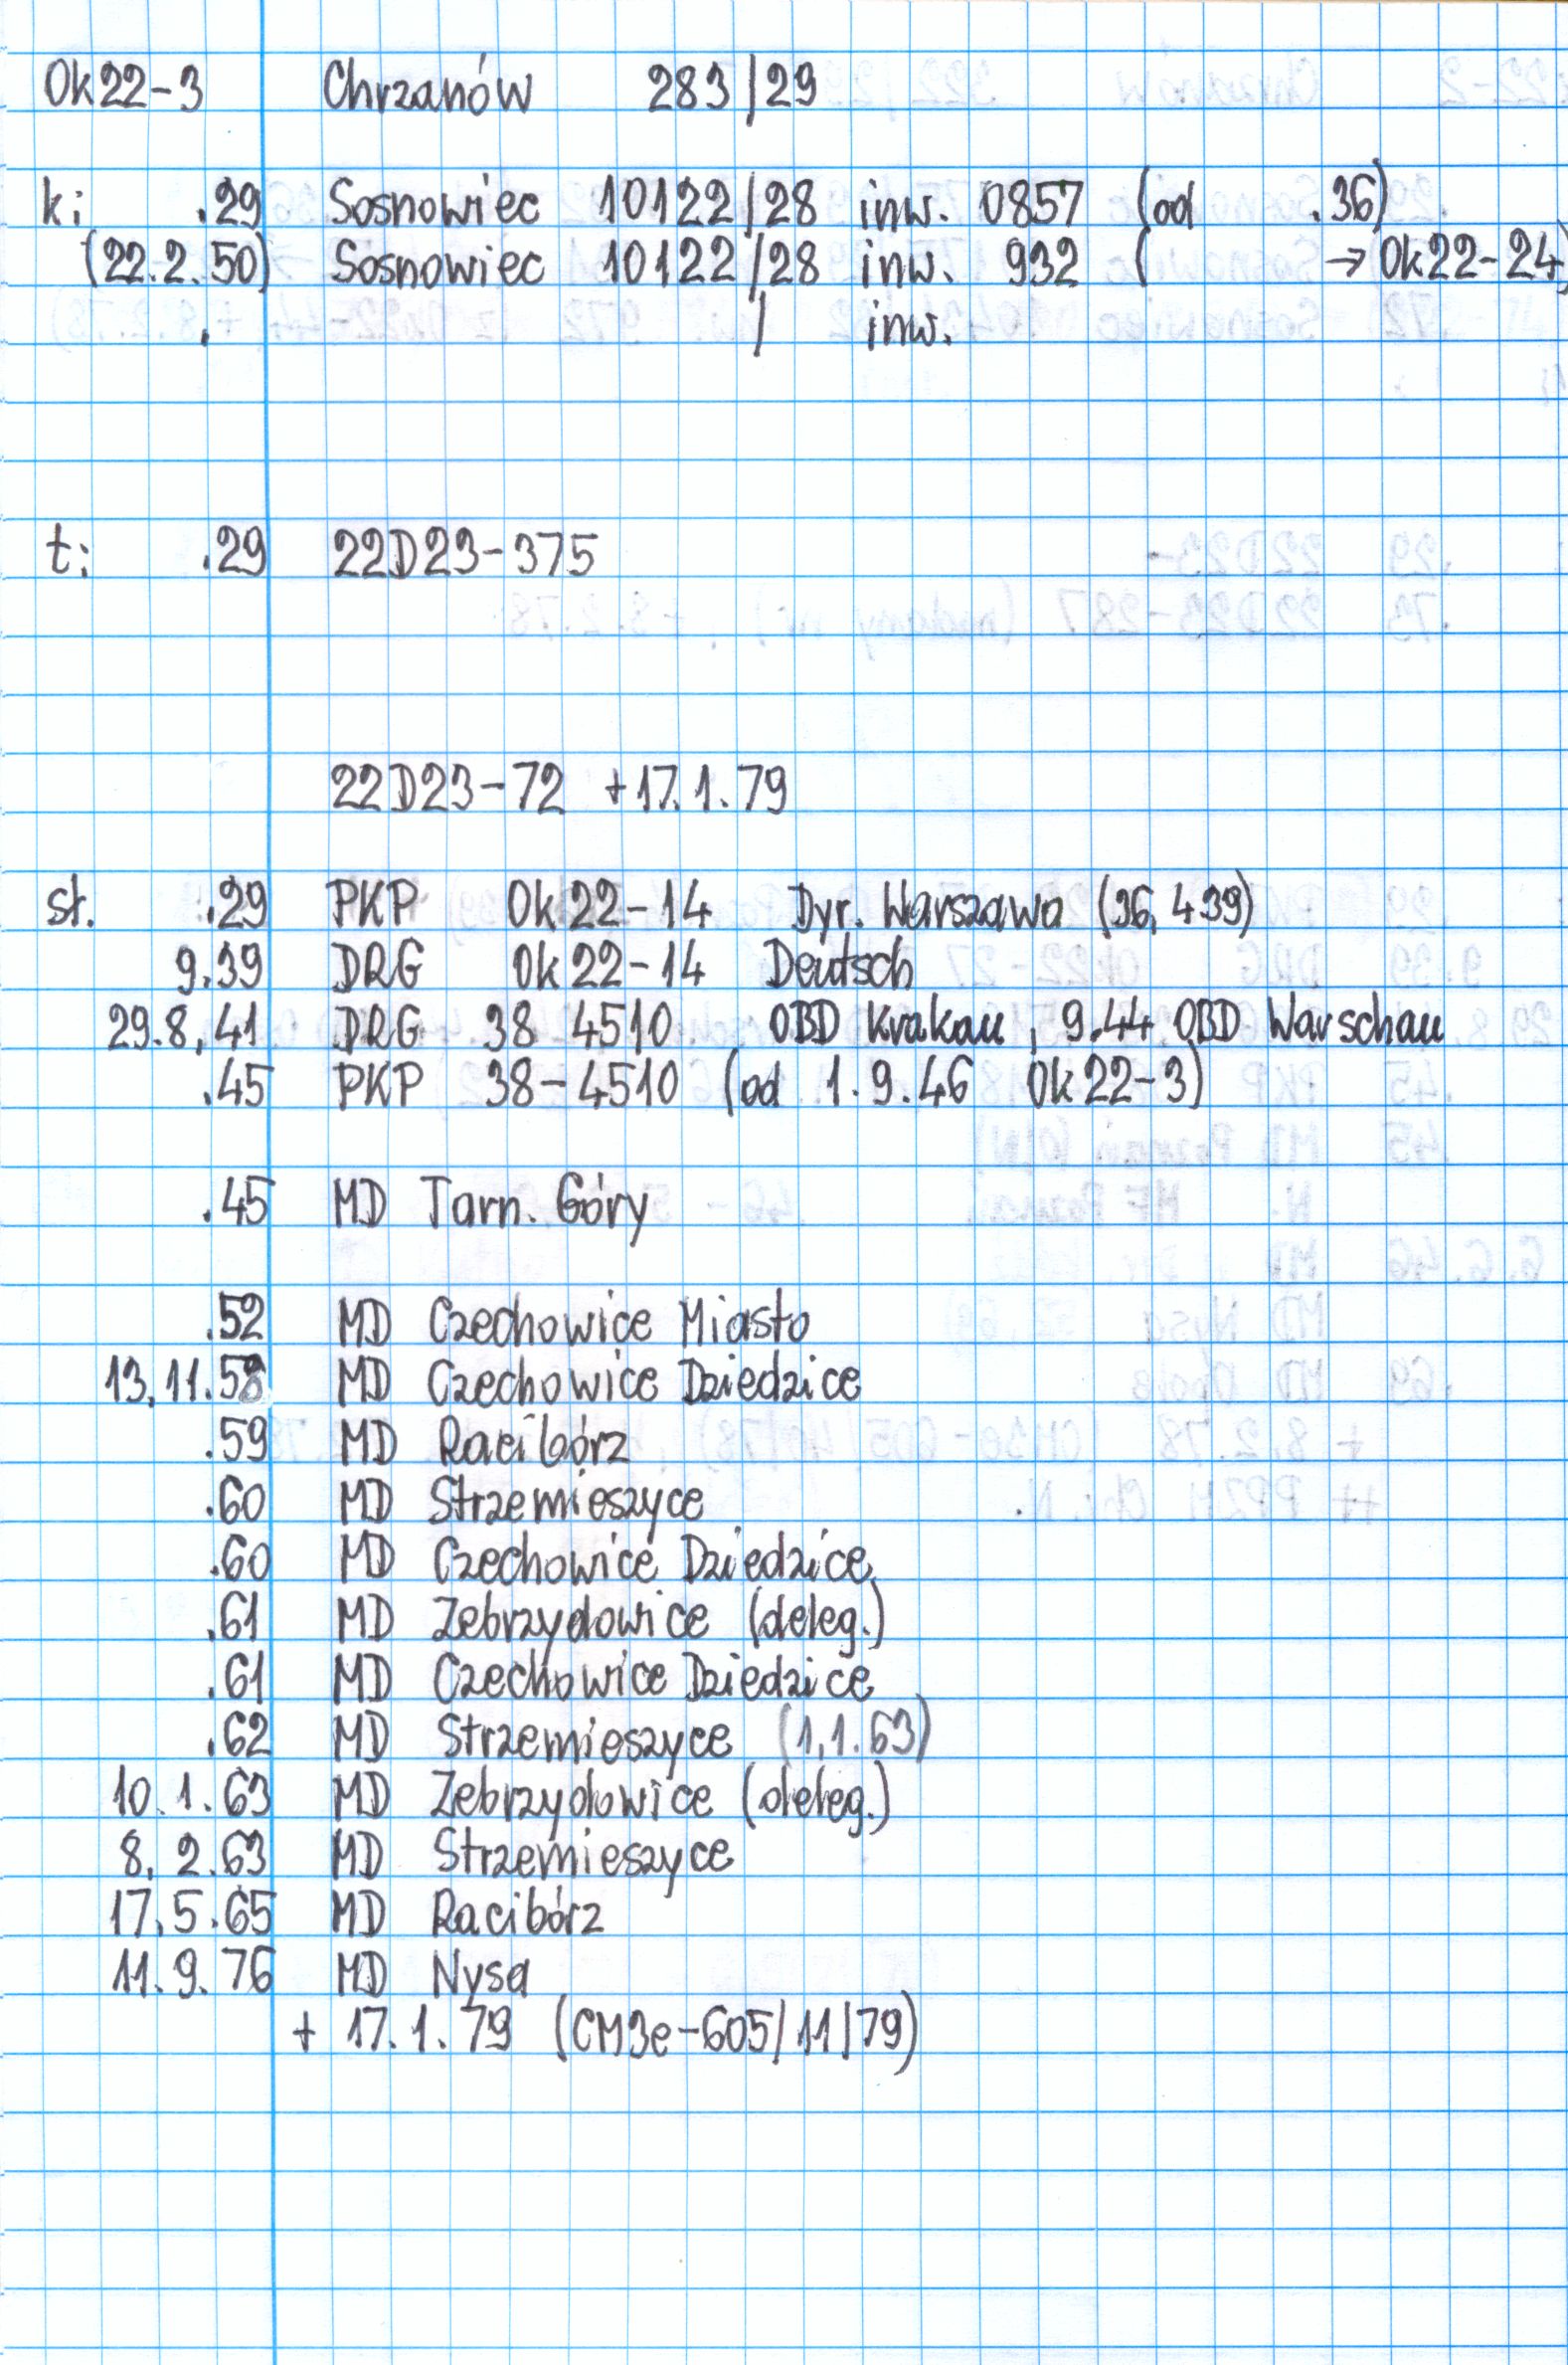 Ok22-3 Chrzanów 283/29
k: .29 Sosnowiec 10122/28 inw. 0857 (od .36)
(22.2.50) Sosnowiec 10122/28 inw. 932 ( → Ok22-24)
. / inw.
t: .29 22D23-375
22D23-72 +17.1.79
st. .29 PKP Ok22-14 Dyr. Warszawa (36, 4 39)
9.39 DRG Ok22-14 Deutsch
29.8.41 DRG 38 4510 OBD Krakau, 9.44 OBD Warschau
.45 PKP 38-4510 (od 1.9.46 Ok22-3)
.45 MD Tarn. Góry
.52 MD Czechowice Miasto
13.11.58 MD Czechowice Dziedzice
.59 MD Racibórz
.60 MD Strzemieszyce
.60 MD Czechowice Dziedzice
.61 MD Zebrzydowice (deleg.)
.61 MD Czechowice Dziedzice
.62 MD Strzemieszyce (1.1.63)
10.1.63 MD Zebrzydowice (deleg.)
8.2.63 MD Strzemieszyce
17.5.65 MD Racibórz
11.9.76 MD Nysa
+ 17.1.79 (CM3e-605/11/79)